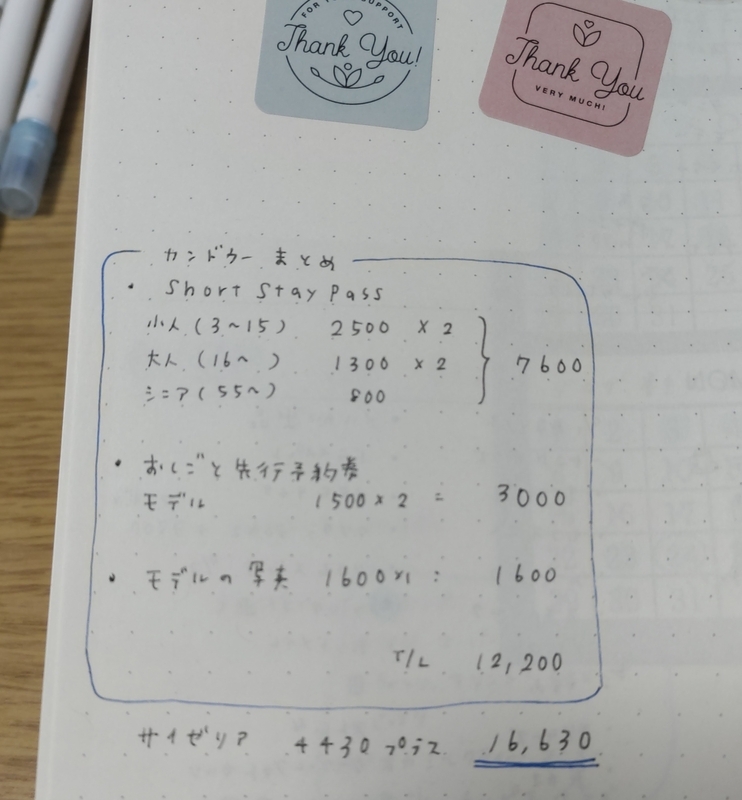 FOR YOUR SUPPORT
Thank You!
Thank You
VERY MUCH!
カンドゥー まとめ
・ Short Stay Pass
小人 (3~15) 2500 × 2
大人 (16~ ) 1300 × 2
シニア (55~) 800
7600
・ おしごと 先行予約券
モデル 1500 × 2 = 3000
・ モデルの 写真 1600×1 : 1600
T/L 12,200
サイゼリア 4430 プラス 16,630